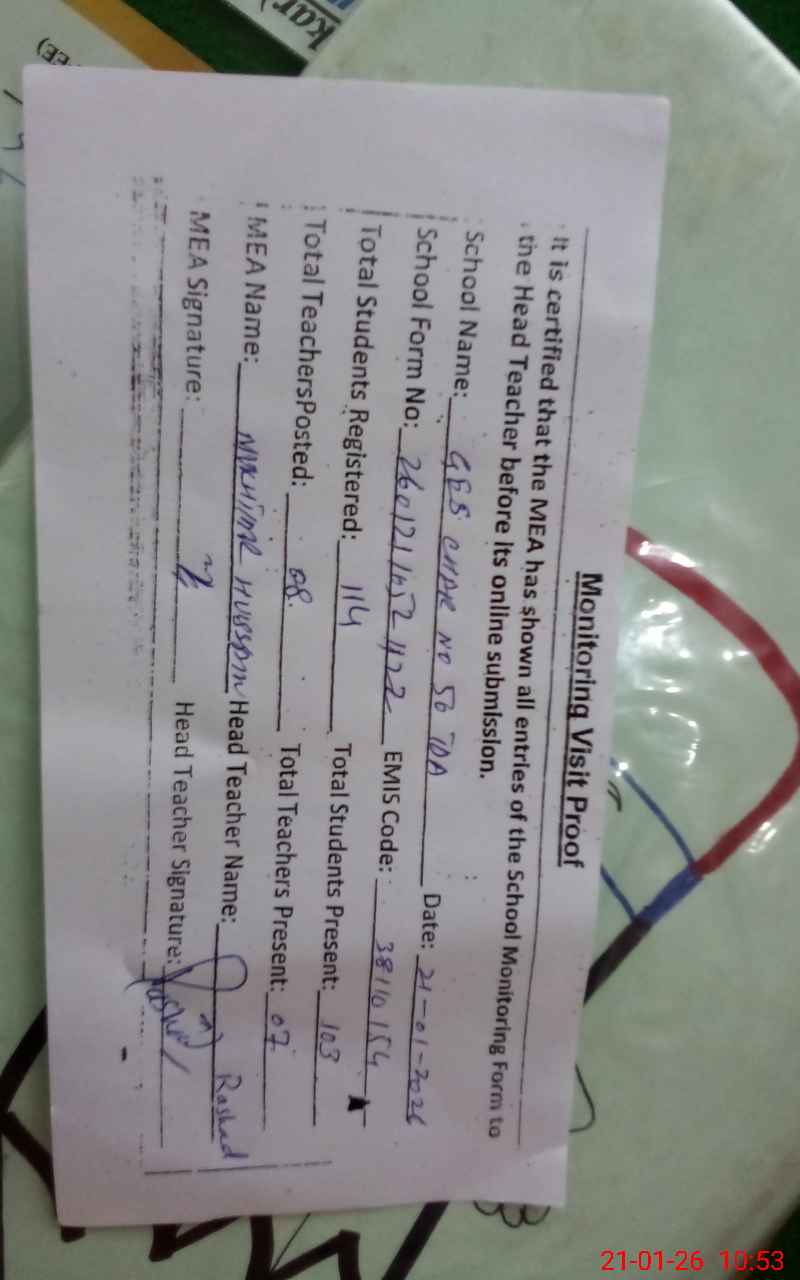 Monitoring Visit Proof
It is certified that the MEA has shown all entries of the School Monitoring Form to
the Head Teacher before its online submission.
School Name: GES CHAK NO 50 TDA Date: 21-01-2026
School Form No: EMIS Code: 38110154
Total Students Registered: 114 Total Students Present: 103
Total TeachersPosted: 08 Total Teachers Present: 07
MEA Name: Head Teacher Name: Rashad
MEA Signature: Head Teacher Signature:
kar)
EE)
21-01-26 10:53